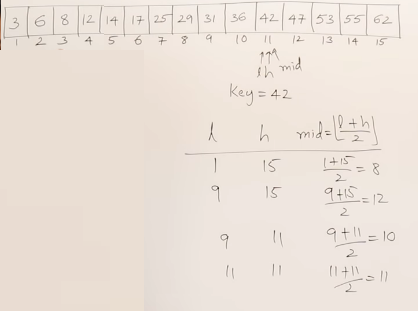 3 6 8 12 14 17 25 29 31 36 42 47 53 55 62
1 2 3 4 5 6 7 8 9 10 11 12 13 14 15
↑↑↑
l h mid
Key = 42
l h mid = ⌊(l + h)/2⌋
1 15 (1+15)/2 = 8
9 15 (9+15)/2 = 12
9 11 (9+11)/2 = 10
11 11 (11+11)/2 = 11